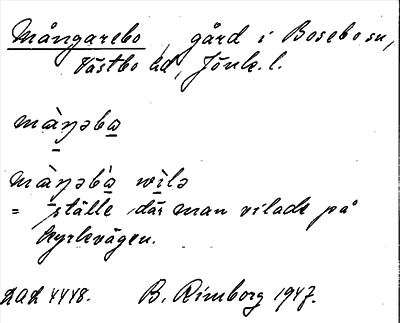 Mångarebo, gård i Bosebo sn,
Västbo hd, Jönk. l.
màŋəba
màŋəbà wilə
= ställe där man vilade på
kyrkvägen.
DAL 4448. B. Rimborg 1947.